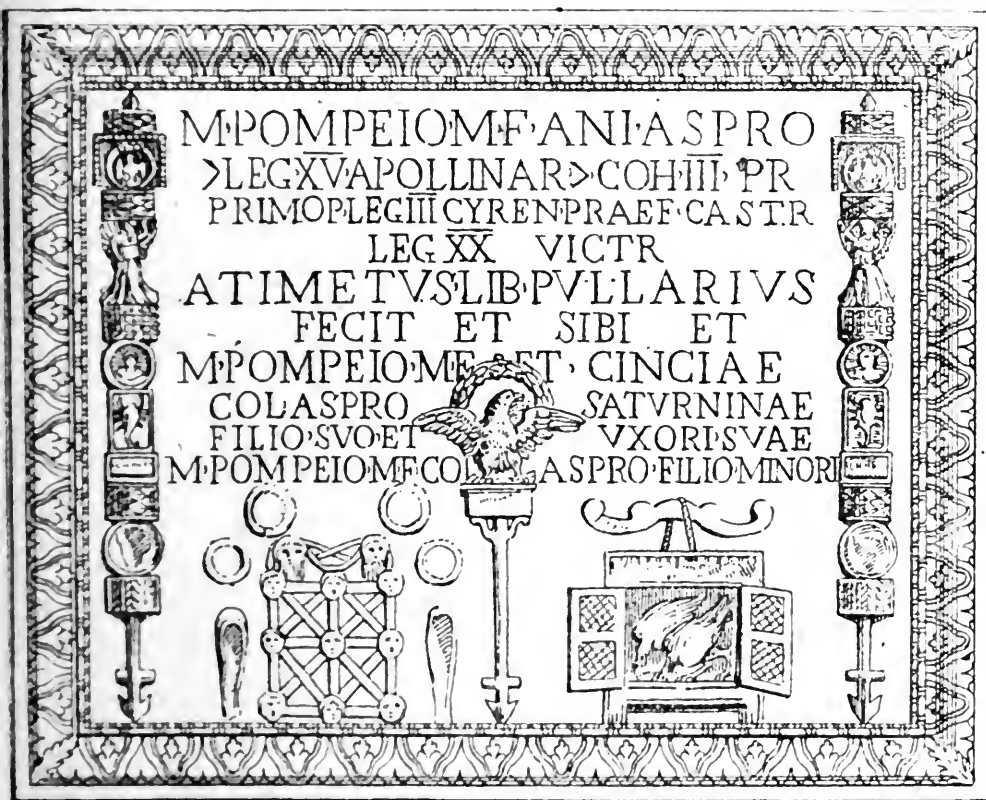 M·POMPEIO·M·F·ANI·ASPRO
>LEG·XV·APOLLINAR>·COH·III·PR
PRIMOP·LEG·III CYREN·PRAEF·CASTR
LEG XX VICTR
ATIMETVS·LIB·PVLLARIVS
FECIT ET SIBI ET
M·POMPEIO·M·F ET· CINCIAE
COL·ASPRO SATVRNINAE
FILIO·SVO·ET VXORI·SVAE
M·POMPEIO·M·F·COL ASPRO·FILIO·MINORI